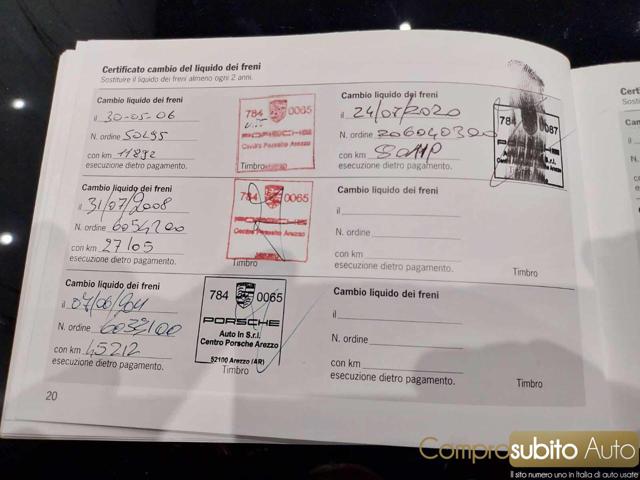 Certificato cambio del liquido dei freni
Sostituire il liquido dei freni almeno ogni 2 anni.
Cambio liquido dei freni
il 30-05-06
N. ordine 50495
con km 11892
esecuzione dietro pagamento.
784 0065
PORSCHE
Centro Porsche Arezzo
Timbro
Cambio liquido dei freni
il 31/07/2008
N. ordine 6054200
con km 27105
esecuzione dietro pagamento.
784 0065
PORSCHE
Centro Porsche Arezzo
Timbro
Cambio liquido dei freni
il
N. ordine
con km 45212
esecuzione dietro pagamento.
784 0065
PORSCHE
Auto In S.r.l.
Centro Porsche Arezzo
52100 Arezzo (AR)
Timbro
Cambio liquido dei freni
il 24/07/2020
N. ordine
con km
esecuzione dietro pagamento.
784 087
Cambio liquido dei freni
il
N. ordine
con km
esecuzione dietro pagamento.
Timbro
Cambio liquido dei freni
il
N. ordine
con km
esecuzione dietro pagamento.
Timbro
20
Comprosubito Auto
Il sito numero uno in Italia di auto usate